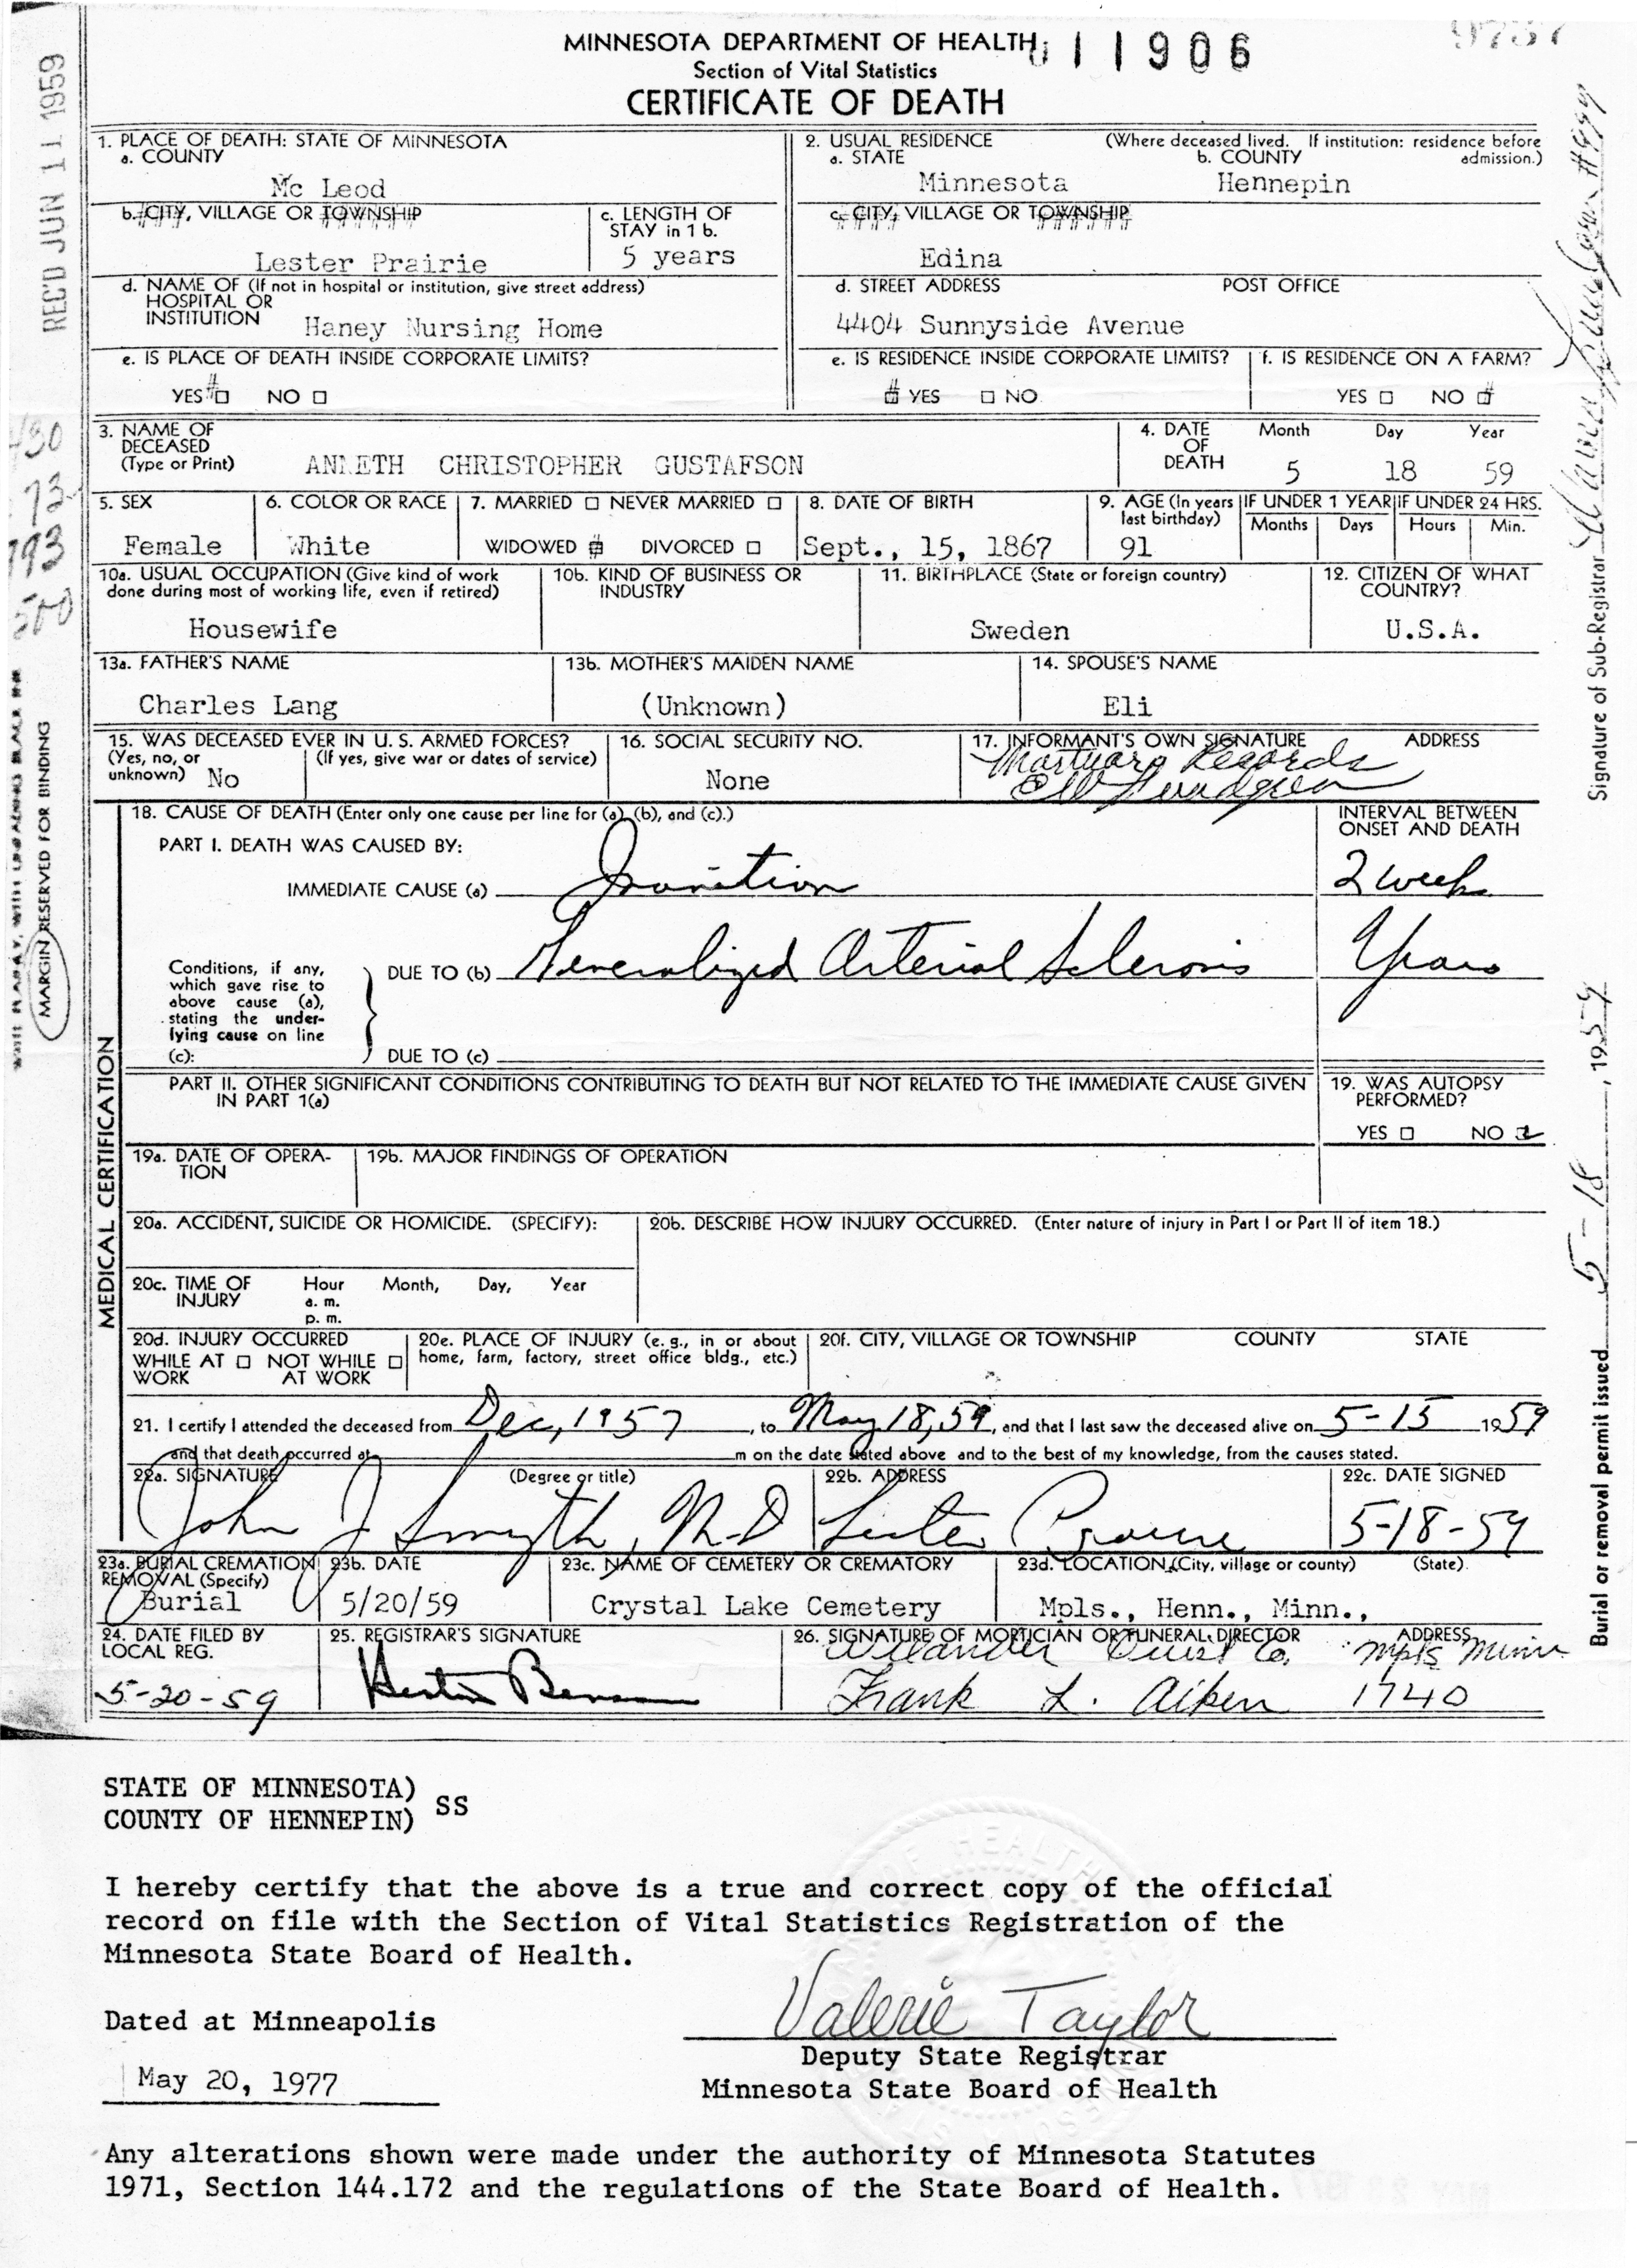 MINNESOTA DEPARTMENT OF HEALTH
011906
Section of Vital Statistics
CERTIFICATE OF DEATH
9757
REC'D JUN 11 1959
1. PLACE OF DEATH: STATE OF MINNESOTA
a. COUNTY
Mc Leod
b. CITY, VILLAGE OR TOWNSHIP
Lester Prairie
c. LENGTH OF STAY in 1 b.
5 years
d. NAME OF (If not in hospital or institution, give street address)
HOSPITAL OR
INSTITUTION Haney Nursing Home
e. IS PLACE OF DEATH INSIDE CORPORATE LIMITS?
YES # NO
2. USUAL RESIDENCE (Where deceased lived. If institution: residence before admission.)
a. STATE b. COUNTY
Minnesota Hennepin
c. CITY, VILLAGE OR TOWNSHIP
Edina
d. STREET ADDRESS POST OFFICE
4404 Sunnyside Avenue
e. IS RESIDENCE INSIDE CORPORATE LIMITS?
# YES NO
f. IS RESIDENCE ON A FARM?
YES NO #
3. NAME OF
DECEASED
(Type or Print) ANNETH CHRISTOPHER GUSTAFSON
4. DATE OF DEATH Month Day Year
5 18 59
5. SEX
Female
6. COLOR OR RACE
White
7. MARRIED NEVER MARRIED
WIDOWED # DIVORCED
8. DATE OF BIRTH
Sept., 15, 1867
9. AGE (In years last birthday)
91
IF UNDER 1 YEAR
Months Days
IF UNDER 24 HRS.
Hours Min.
10a. USUAL OCCUPATION (Give kind of work
done during most of working life, even if retired)
Housewife
10b. KIND OF BUSINESS OR INDUSTRY
11. BIRTHPLACE (State or foreign country)
Sweden
12. CITIZEN OF WHAT COUNTRY?
U.S.A.
13a. FATHER'S NAME
Charles Lang
13b. MOTHER'S MAIDEN NAME
(Unknown)
14. SPOUSE'S NAME
Eli
15. WAS DECEASED EVER IN U. S. ARMED FORCES?
(Yes, no, or unknown) No (If yes, give war or dates of service)
16. SOCIAL SECURITY NO.
None
17. INFORMANT'S OWN SIGNATURE ADDRESS
Mortuary Records
E W Lundgren
MEDICAL CERTIFICATION
18. CAUSE OF DEATH (Enter only one cause per line for (a) (b), and (c).)
INTERVAL BETWEEN ONSET AND DEATH
PART I. DEATH WAS CAUSED BY:
IMMEDIATE CAUSE (a) Inanition 2 weeks
Conditions, if any, which gave rise to above cause (a), stating the underlying cause on line (c):
DUE TO (b) Generalized Arterial Sclerosis Years
DUE TO (c)
PART II. OTHER SIGNIFICANT CONDITIONS CONTRIBUTING TO DEATH BUT NOT RELATED TO THE IMMEDIATE CAUSE GIVEN
IN PART 1(a)
19. WAS AUTOPSY PERFORMED?
YES NO
19a. DATE OF OPERATION
19b. MAJOR FINDINGS OF OPERATION
20a. ACCIDENT, SUICIDE OR HOMICIDE. (SPECIFY):
20b. DESCRIBE HOW INJURY OCCURRED. (Enter nature of injury in Part I or Part II of item 18.)
20c. TIME OF INJURY Hour Month, Day, Year
a. m.
p. m.
20d. INJURY OCCURRED
WHILE AT WORK NOT WHILE AT WORK
20e. PLACE OF INJURY (e. g., in or about
home, farm, factory, street office bldg., etc.)
20f. CITY, VILLAGE OR TOWNSHIP COUNTY STATE
21. I certify I attended the deceased from Dec, 1957, to May 18, 59, and that I last saw the deceased alive on 5-15 1959
and that death occurred at m on the date stated above and to the best of my knowledge, from the causes stated.
22a. SIGNATURE (Degree or title)
John J Smyth, M-D
22b. ADDRESS
Lester Prairie
22c. DATE SIGNED
5-18-59
23a. BURIAL CREMATION
REMOVAL (Specify)
Burial
23b. DATE
5/20/59
23c. NAME OF CEMETERY OR CREMATORY
Crystal Lake Cemetery
23d. LOCATION (City, village or county) (State)
Mpls., Henn., Minn.,
24. DATE FILED BY
LOCAL REG.
5-20-59
25. REGISTRAR'S SIGNATURE
26. SIGNATURE OF MORTICIAN OR FUNERAL DIRECTOR ADDRESS
Willander Quist Co. Mpls Minn
Frank L. Aiken 1740
MARGIN RESERVED FOR BINDING
Signature of Sub-Registrar
Burial or removal permit issued 5-18, 1959
STATE OF MINNESOTA)
COUNTY OF HENNEPIN) SS
I hereby certify that the above is a true and correct copy of the official
record on file with the Section of Vital Statistics Registration of the
Minnesota State Board of Health.
Dated at Minneapolis
May 20, 1977
Valerie Taylor
Deputy State Registrar
Minnesota State Board of Health
Any alterations shown were made under the authority of Minnesota Statutes
1971, Section 144.172 and the regulations of the State Board of Health.